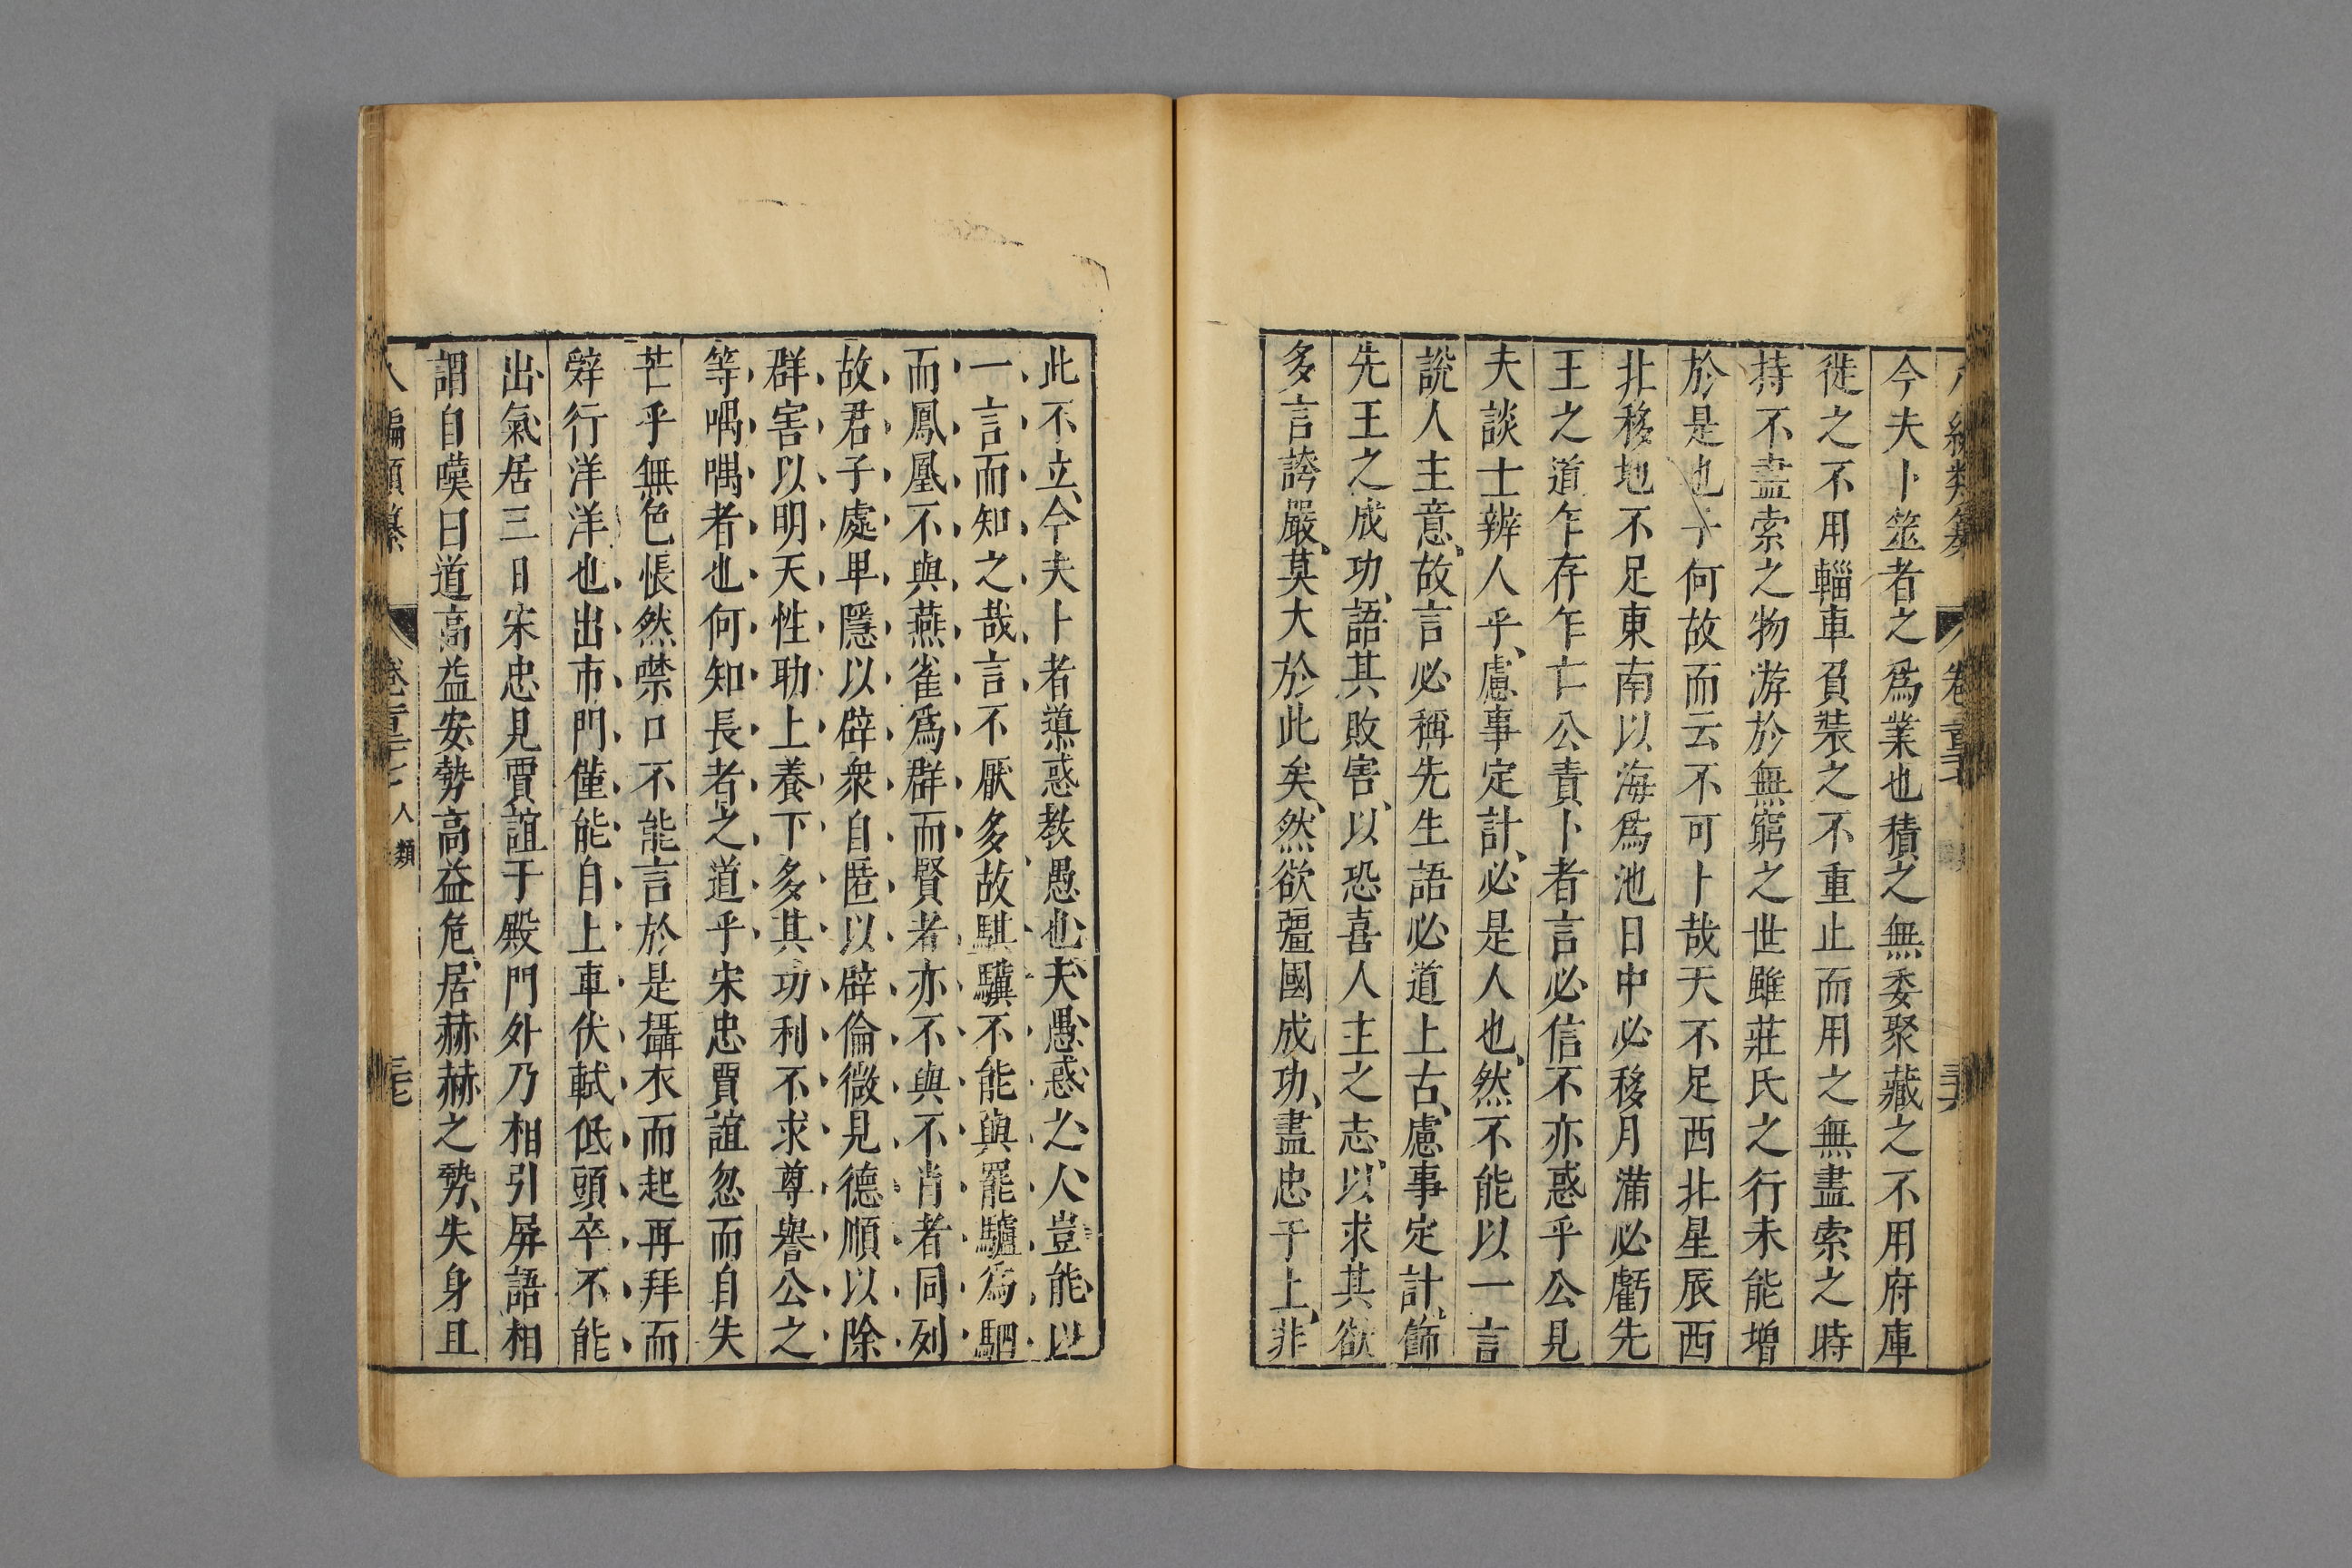 今夫卜筮者之爲業也積之無委聚藏之不用府庫
徙之不用輜車負裝之不重止而用之無盡索之時
持不盡索之物游於無窮之世雖莊氏之行未能增
於是也子何故而云不可卜哉天不足西北星辰西
北移地不足東南以海爲池日中必移月滿必虧先
王之道乍存乍亡公責卜者言必信不亦惑乎公見
夫談士辨人乎、慮事定計、必是人也、然不能以一言
說人主意、故言必稱先生語必道上古、慮事定計、飾
先王之成功、語其敗害、以恐喜人主之志、以求其欲
多言誇嚴、莫大於此矣、然欲彊國成功、盡忠于上、非
此不立、今夫卜者導惑教愚也、夫愚惑之人豈能以
一言而知之哉言不厭多故騏驥不能與罷驢爲駟
而鳳凰不與燕雀爲群而賢者亦不與不肖者同列
故君子處卑隱以辟衆自匿以辟倫微見德順以除
群害以明天性助上養下多其功利不求尊譽公之
等喁喁者也何知長者之道乎宋忠賈誼忽而自失
芒乎無色悵然噤口不能言於是攝衣而起再拜而
辤行洋洋也出市門僅能自上車伏軾低頭卒不能
出氣居三日宋忠見賈誼于殿門外乃相引屏語相
謂自嘆曰道高益安勢高益危、居赫赫之勢、失身且
人類